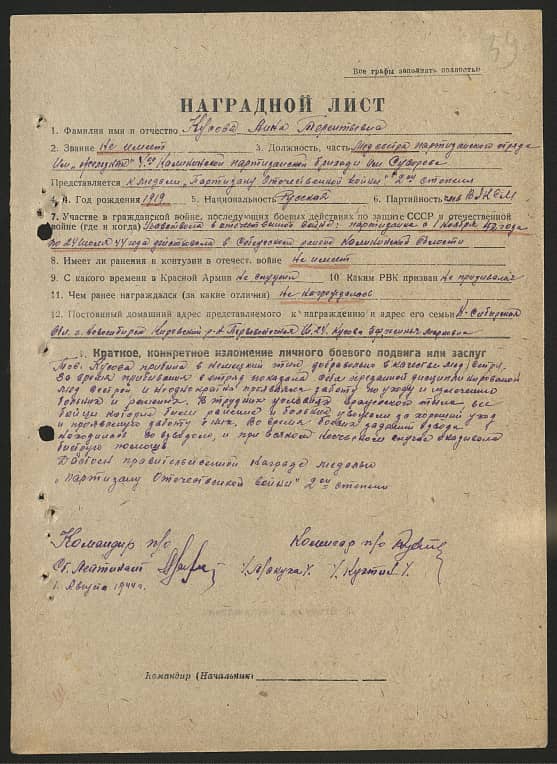 39
Все графы заполнять полностью
НАГРАДНОЙ ЛИСТ
1. Фамилия имя и отчество Анна
2. Звание Не имеет 3. Должность, часть Медсестра партизанского отряда
Им. 4ой Калининской партизанской бригады Им. Суворова
Представляется к медали „Партизану Отечественной войны" 2ой степени
4. Год рождения 1919 5. Национальность Русская 6. Партийность член ВЛКСМ
7. Участие в гражданской войне, последующих боевых действиях по защите СССР и отечественной
войне (где и когда) в отечественной войне: партизанка с 1 ноября года
по 24 июля 44 года действовала в районе Калининской области
8. Имеет ли ранения и контузии в отечест. войне Не имеет
9. С какого времени в Красной Армии Не служит 10. Каким РВК призван Не призывалась
11. Чем ранее награждался (за какие отличия) Не награждалась
12. Постоянный домашний адрес представляемого к награждению и адрес его семьи Н-Сибирская
Обл. г. Новосибирск Кировский р-н
1. Краткое, конкретное изложение личного боевого подвига или заслуг
Тов. прибыла в немецкий тыл добровольно в качестве мед. сестры.
Во время пребывания в отряде показала себя дисциплинированной
мед. сестрой и неоднократно работу по уходу и излечению
больных и раненых. В трудных условиях вражеского тыла все
бойцы которые были ранены и больные за хороший уход
и работу о них. Во время боевых заданий взвода
находилась со взводом, и при всяком несчастном случае оказывала
быструю помощь.
Достойна правительственной награды медалью
„Партизану Отечественной войны" 2ой степени
Командир п/о Комиссар п/о
Ст. Лейтенант
1. Августа 1944 г.
Командир (Начальник)